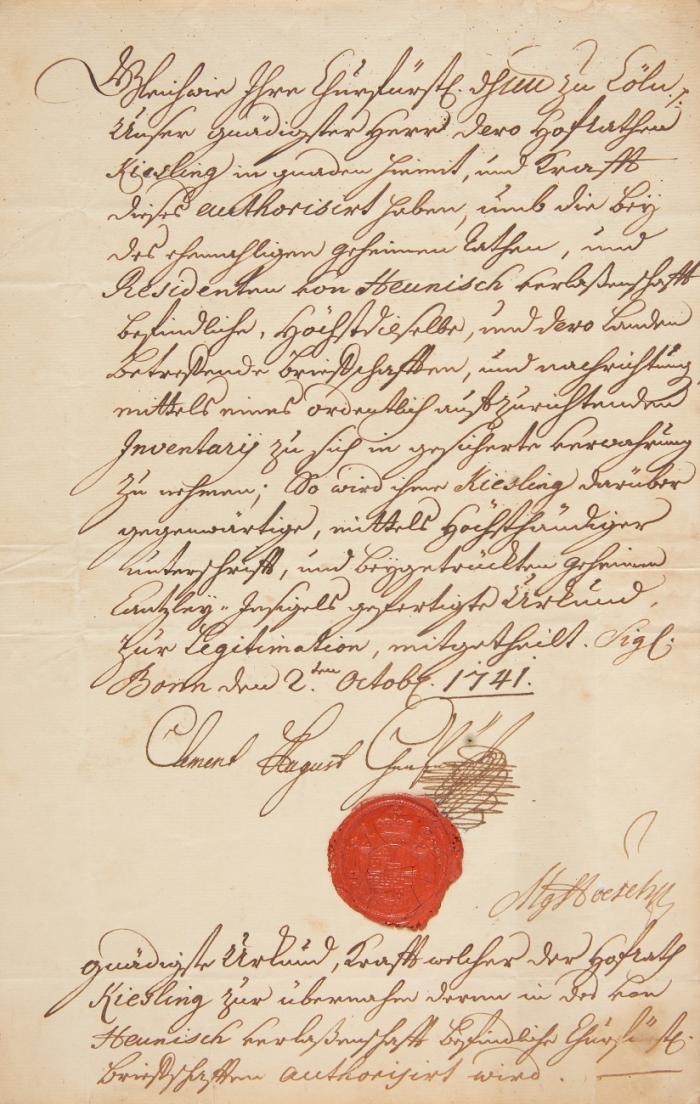 Gleichwie Ihre Churfürstl. dhlt zu Cöln
Unser gnädigster Herr dero Hofrathen
Kiesling in gnaden hiemit, und Krafft
dieses authorisirt haben, umb die bey
des ehemahligen geheimen rathen, und
Residenten von Heunisch verlaßenschafft
befindliche, Höchstdieselbe, und dero Landen
betreffende brieffschafften, und nachrichtung
mittels eines ordentlich aufzurichtenden
Inventarij zu sich in gesicherte verwahrung
zu nehmen; So wird ihme Kiesling darüber
gegenwärtige, mittels Höchsthändiger
unterschrifft, und beygetrückten geheimen
Cantzley-Insigels gefertigte Urkund,
zur Legitimation, mitgetheilt. Sigl.
Bonn den 2.ten Octobr. 1741.
Clement August Churfürst
gnädigste Urkund, Krafft welcher der Hofrath
Kiesling zur übernahm deren in des von
Heunisch verlaßenschafft befindliche Churfürstl.
brieffschafften authorisirt wird.